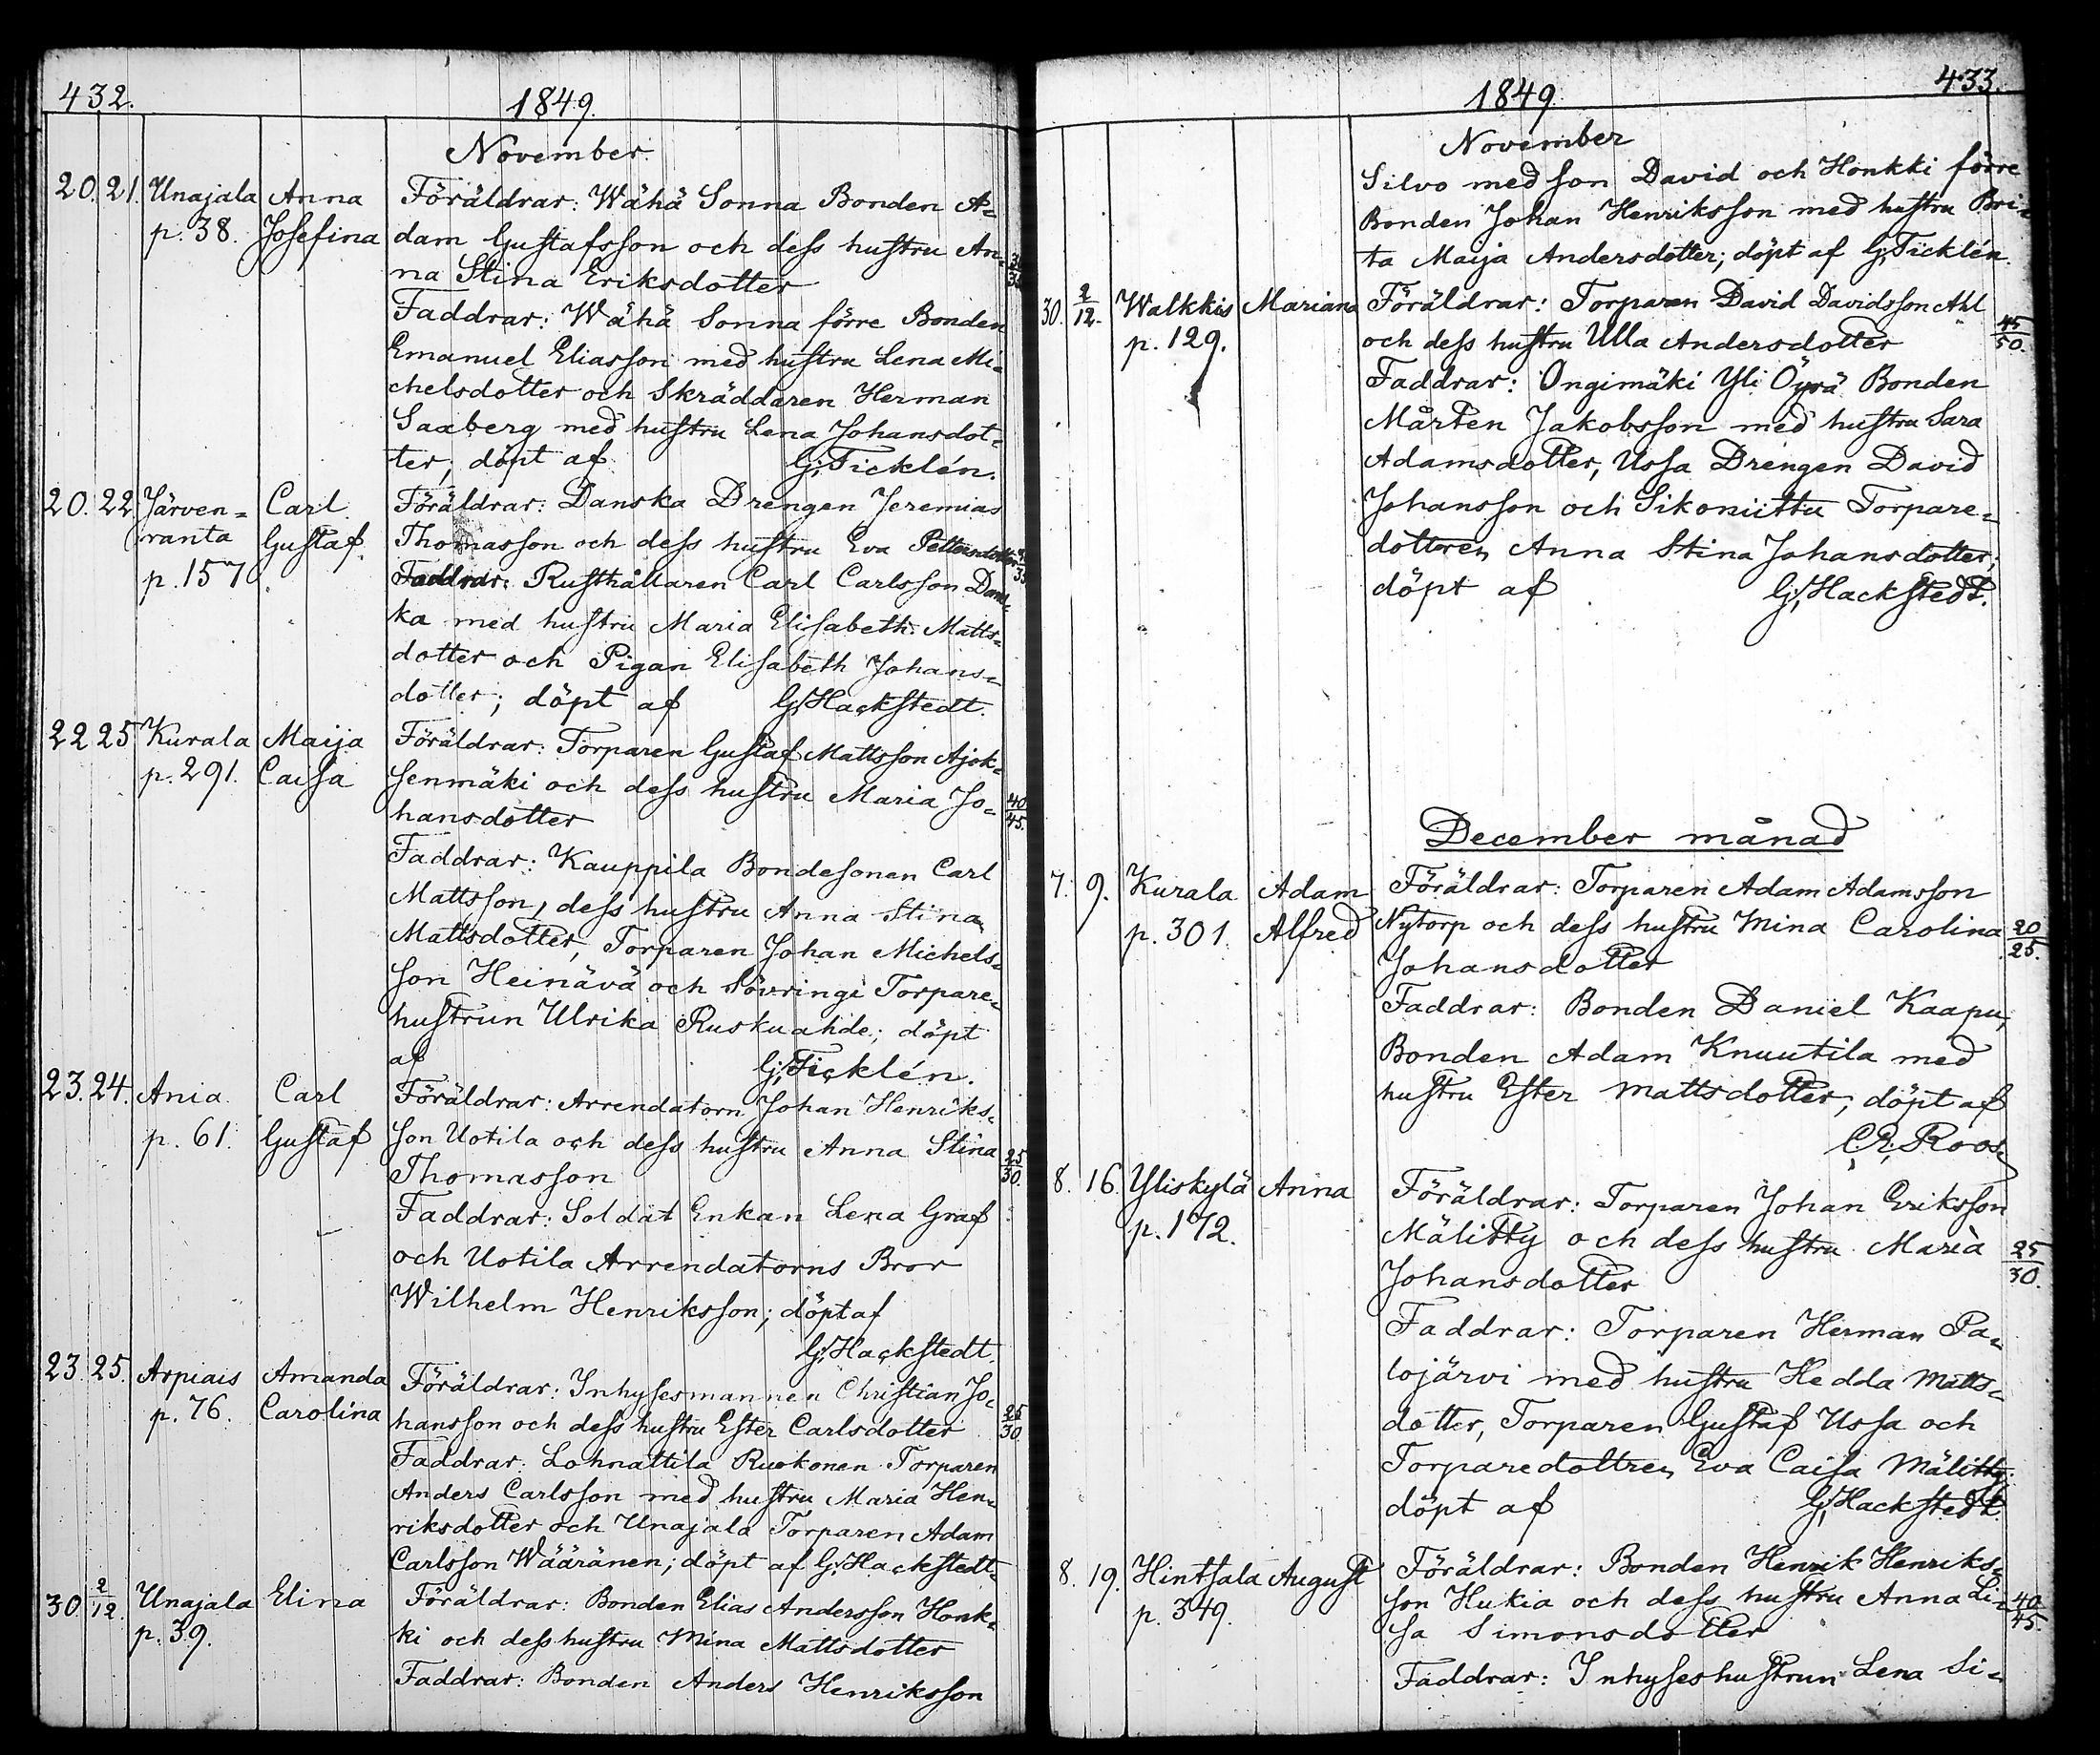 432.
1849.
November.
20. 21. Unajala Anna Föräldrar: Wähä Sonna Bonden A-
p. 38. Josefina dam Gustafsson och dess hustru An-
na Stina Eriksdotter
Faddrar: Wähä Sonna förre Bonden
Emanuel Eliasson med hustru Lena Mi-
chelsdotter och Skräddaren Herman
Saxberg med hustru Lena Johansdot-
ter; döpt af G; Ticklén.
20. 22 Järven= Carl Föräldrar: Danska Drengen Jeremias
ranta Gustaf. Thomasson och dess hustru Eva Pettersdotter
p. 157. Faddrar: Rusthållaren Carl Carlsson Dans-
ka med hustru Maria Elisabeth Matts=
dotter och Pigan Elisabeth Johans=
dotter; döpt af G; Hackstedt.
22 25 Kurala Maija Föräldrar: Torparen Gustaf Mattsson Ajok-
p. 291. Caisa senmäki och dess hustru Maria Jo- 40/45.
hansdotter
Faddrar: Kauppila Bondesonen Carl
Mattsson, dess hustru Anna Stina
Mattsdotter, Torparen Johan Michels=
son Heinävä och Sövringi Torpare=
hustrun Ulrika Ruskuahde; döpt
af G; Ticklén.
23. 24. Ania Carl Föräldrar: Arrendatorn Johan Henriks-
p. 61. Gustaf son Uotila och dess hustru Anna Stina 25/30.
Thomasson
Faddrar: Soldat Enkan Lena Graf
och Uotila Arrendatorns Bror
Wilhelm Henriksson; döpt af
G; Hackstedt.
23. 25. Arpiais Amanda Föräldrar: Inhysesmannen Christian Jo-
p. 76. Carolina hansson och dess hustru Ester Carlsdotter 25/30.
Faddrar: Lohnattila Ruokonen Torparen
Anders Carlsson med hustru Maria Hen-
riksdotter och Unajala Torparen Adam
Carlsson Wääränen; döpt af G; Hackstedt.
30 2/12. Unajala Elina Föräldrar: Bonden Elias Andersson Honk-
p. 39. ki och dess hustru Mina Mattsdotter
Faddrar: Bonden Anders Henriksson
433.
1849.
November
Silvo med son David och Honkki förre
Bonden Johan Henriksson med hustru Bri-
ta Maija Andersdotter; döpt af G; Ticklén.
30. 2/12. Walkkis Mariana Föräldrar: Torparen David Davidsson Ahl
p. 129. och dess hustru Ulla Andersdotter 45/50.
Faddrar: Ongimäki Yli Öyrä Bonden
Mårten Jakobsson med hustru Sara
Adamsdotter, Ussa Drengen David
Johansson och Sikoniittu Torpare=
dottren Anna Stina Johansdotter;
döpt af G; Hackstedt.
December månad
7. 9. Kurala Adam Föräldrar: Torparen Adam Adamsson
p. 301. Alfred Nytorp och dess hustru Mina Carolina 20/25.
Johansdotter
Faddrar: Bonden Daniel Kaapu,
Bonden Adam Knuutila med
hustru Ester Mattsdotter; döpt af
C. E. Roos.
8. 16. Yliskylä Anna Föräldrar: Torparen Johan Eriksson
p. 172. Mälitty och dess hustru Maria 25/30.
Johansdotter
Faddrar: Torparen Herman Pa-
lojärvi med hustru Hedda Matts-
dotter, Torparen Gustaf Ussa och
Torparedottren Eva Caisa Mälitty;
döpt af G; Hackstedt.
8. 19. Hintsala August Föräldrar: Bonden Henrik Henriks-
p. 349. son Hukia och dess hustru Anna Li- 40/45.
sa Simonsdotter
Faddrar: Inhyseshustrun Lena Si-